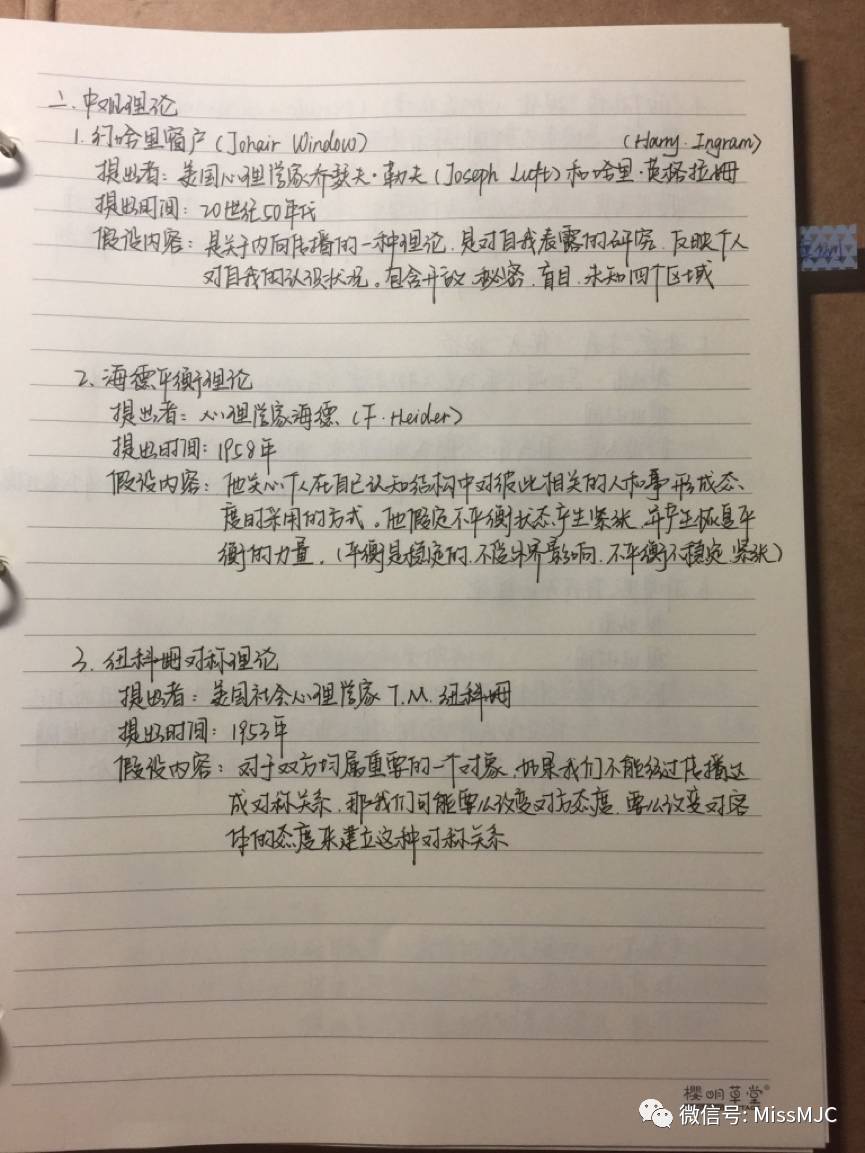 二.中观理论
1.约哈里窗户(Johair Window) (Harry. Ingram)
提出者：美国心理学家乔瑟夫·勒夫(Joseph Luft)和哈里·英格拉姆
提出时间：20世纪50年代
假设内容：是关于内向传播的一种理论.是对自我表露的研究.反映个人
对自我的认识状况。包含开放.秘密.盲目.未知四个区域
2.海德平衡理论
提出者：心理学家海德(F.Heider)
提出时间：1958年
假设内容：他关心个人在自己认知结构中对彼此相关的人和事形成态
度时采用的方式。他假定不平衡状态产生紧张.并产生恢复平
衡的力量.(平衡是稳定的.不受外界影响.不平衡不稳定.紧张)
3.纽科姆对称理论
提出者：美国社会心理学家T.M.纽科姆
提出时间：1953年
假设内容：对于双方均属重要的一个对象.如果我们不能经过传播达
成对称关系.那我们可能要么改变对方态度.要么改变对客
体的态度来建立这种对称关系
樱明草堂
微信号: MissMJC